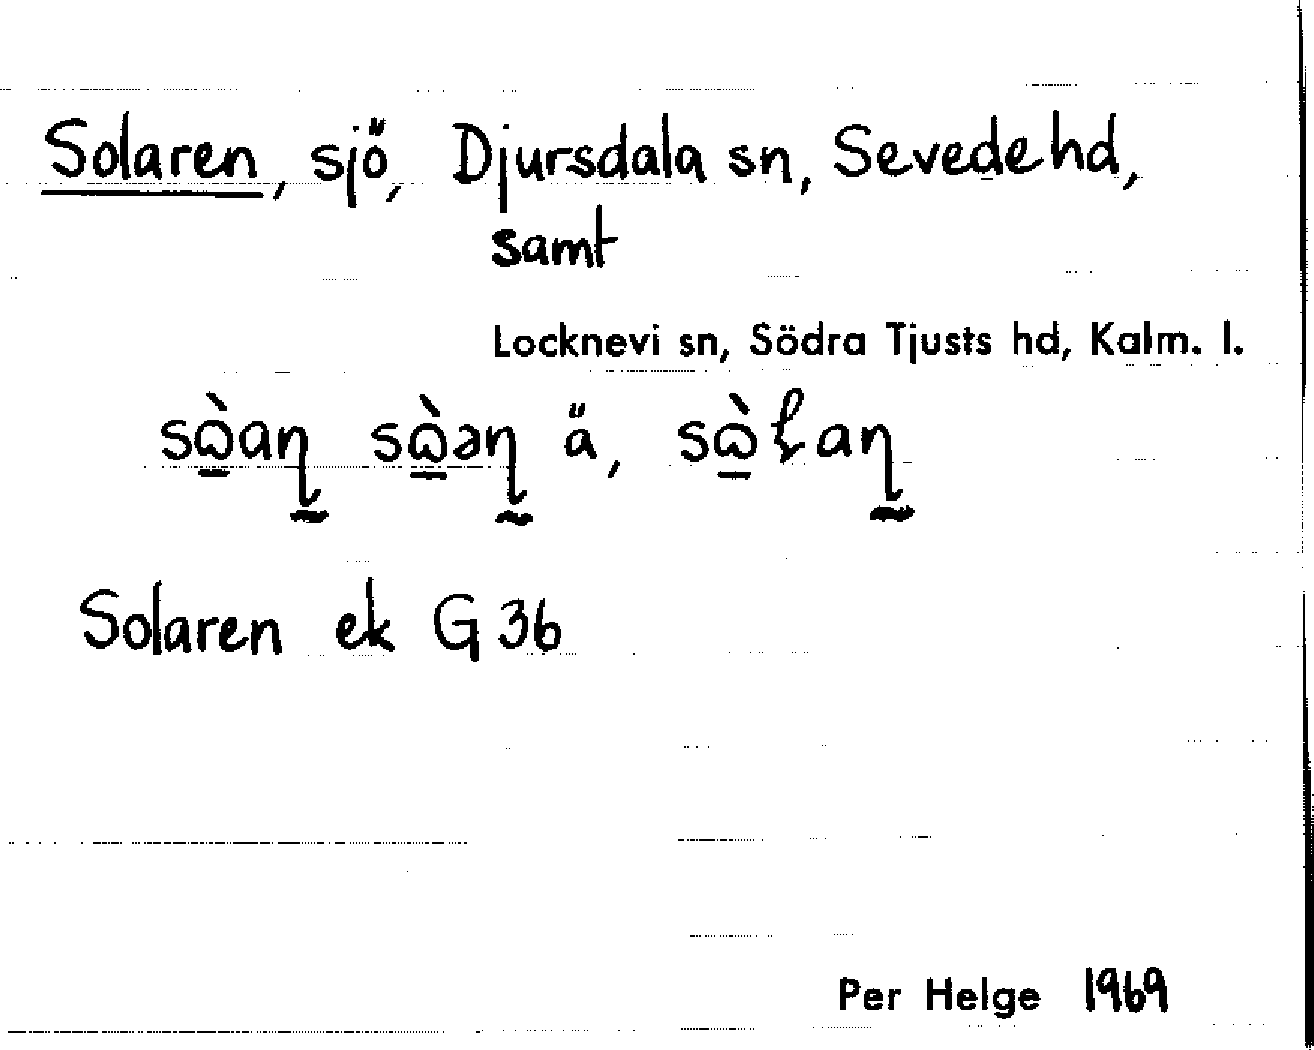 Solaren, sjö, Djursdala sn, Sevede hd,
samt
Locknevi sn, Södra Tjusts hd, Kalm. l.
sὼ̲aɳ̰ sὼ̲əɳ̰ ä, sὼ̲ɫaɳ̰
Solaren ek G 36
Per Helge 1969